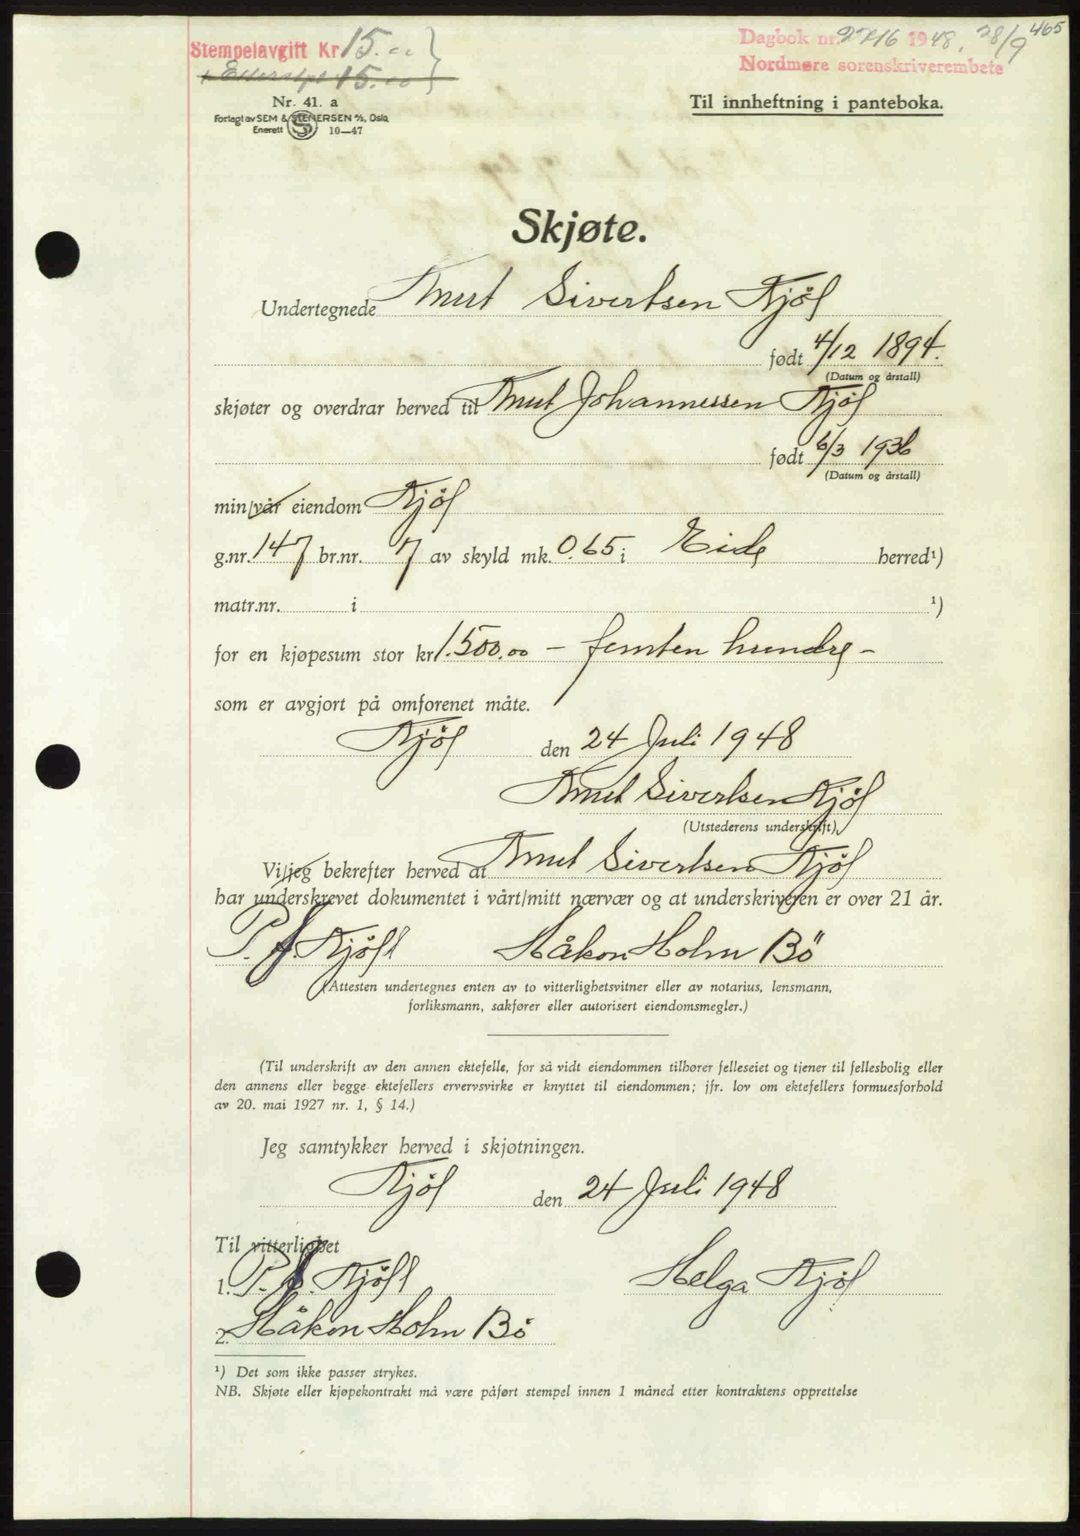 Stempelavgift Kr 15.00
+ Etterstpl 15.00
Dagbok nr. 2716 1948, 28/9 465
Nordmøre sorenskriverembete
Nr. 41. a
Forlagt av SEM & STENERSEN A/S, Oslo
Enerett 10—47
Til innheftning i panteboka.
Skjøte.
Undertegnede Knut Sivertsen Kjöl
født 4/12 1894.
(Datum og årstall)
skjøter og overdrar herved til Knut Johannessen Kjöl
født 6/3 1936
(Datum og årstall)
min/vår eiendom Kjöl
g.nr. 147 br.nr. 7 av skyld mk. 0.65 i Eide herred¹)
matr.nr. i ¹)
for en kjøpesum stor kr 1.500.00 – femten hundre –
som er avgjort på omforenet måte.
Kjöl den 24 Juli 1948
Knut Sivertsen Kjöl
(Utstederens underskrift)
Vi/jeg bekrefter herved at Knut Sivertsen Kjöl
har underskrevet dokumentet i vårt/mitt nærvær og at underskriveren er over 21 år.
P. J. Kjöll Håkon Holm Bö
(Attesten undertegnes enten av to vitterlighetsvitner eller av notarius, lensmann,
forliksmann, sakfører eller autorisert eiendomsmegler.)
(Til underskrift av den annen ektefelle, for så vidt eiendommen tilhører felleseiet og tjener til fellesbolig eller
den annens eller begge ektefellers ervervsvirke er knyttet til eiendommen; jfr. lov om ektefellers formuesforhold
av 20. mai 1927 nr. 1, § 14.)
Jeg samtykker herved i skjøtningen.
Kjöl den 24 Juli 1948
Til vitterlighet
1. P. J. Kjöll Helga Kjöl
2. Håkon Holm Bö
¹) Det som ikke passer strykes.
NB. Skjøte eller kjøpekontrakt må være påført stempel innen 1 måned etter kontraktens opprettelse